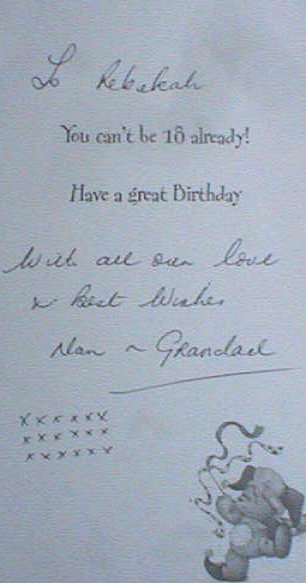 To Rebekah
You can't be 18 already!
Have a great Birthday
With all our love
x best Wishes
Nan ~ Grandad
x x x x x x
x x x x x x
x x x x x x